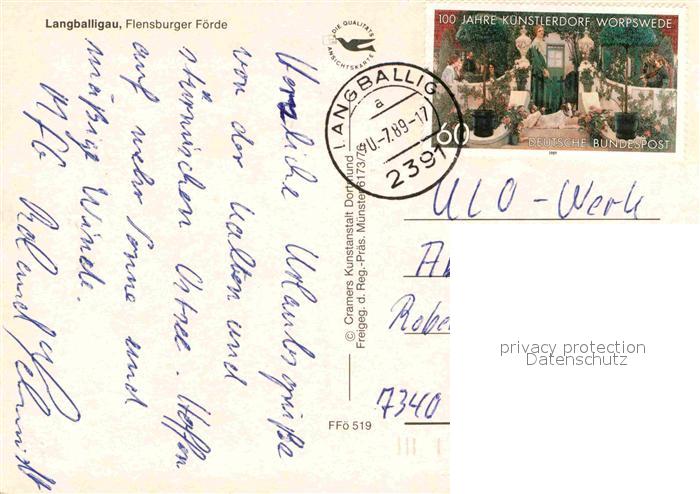 Langballigau, Flensburger Förde
DIE QUALITÄTS
ANSICHTSKARTE
100 JAHRE KÜNSTLERDORF WORPSWEDE
60
DEUTSCHE BUNDESPOST
1989
LANGBALLIG
a
-7.89-17
2391
Herzliche Urlaubsgrüße
von der kalten und
stürmischen Ostsee. Hoffen
auf mehr Sonne und
mäßige Winde.
Mfg
Roland Schmidt
© Cramers Kunstanstalt Dortmund
Freigeg. d. Reg.-Präs. Münster 6173/76
FFö 519
ULO-Werk
7340
privacy protection
Datenschutz